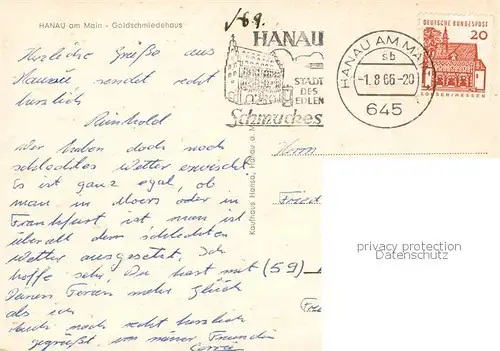 HANAU am Main - Goldschmiedehaus
√69.
Herzliche Grüße aus
Hanau sendet recht
herzlich
Reinhold
Wir haben doch noch
schlechtes Wetter erwischt.
Es ist ganz egal, ob
man in Moers oder in
Frankfurt ist man ist
überall dem schlechten
Wetter ausgesetzt. Ich
hoffe sehr, Du hast mit
Deinen Ferien mehr Glück
als ich
Auch noch recht herzlich
gegrüßt von meiner Freundin
HANAU
STADT
DES
EDLEN
Schmuckes
HANAU AM MAIN
sb
-1.8.66-20
645
DEUTSCHE BUNDESPOST
20
LORSCH/HESSEN
Kaufhaus Hansa, Hanau a. M
Herrn
Fried
(59)
Frie
privacy protection
Datenschutz